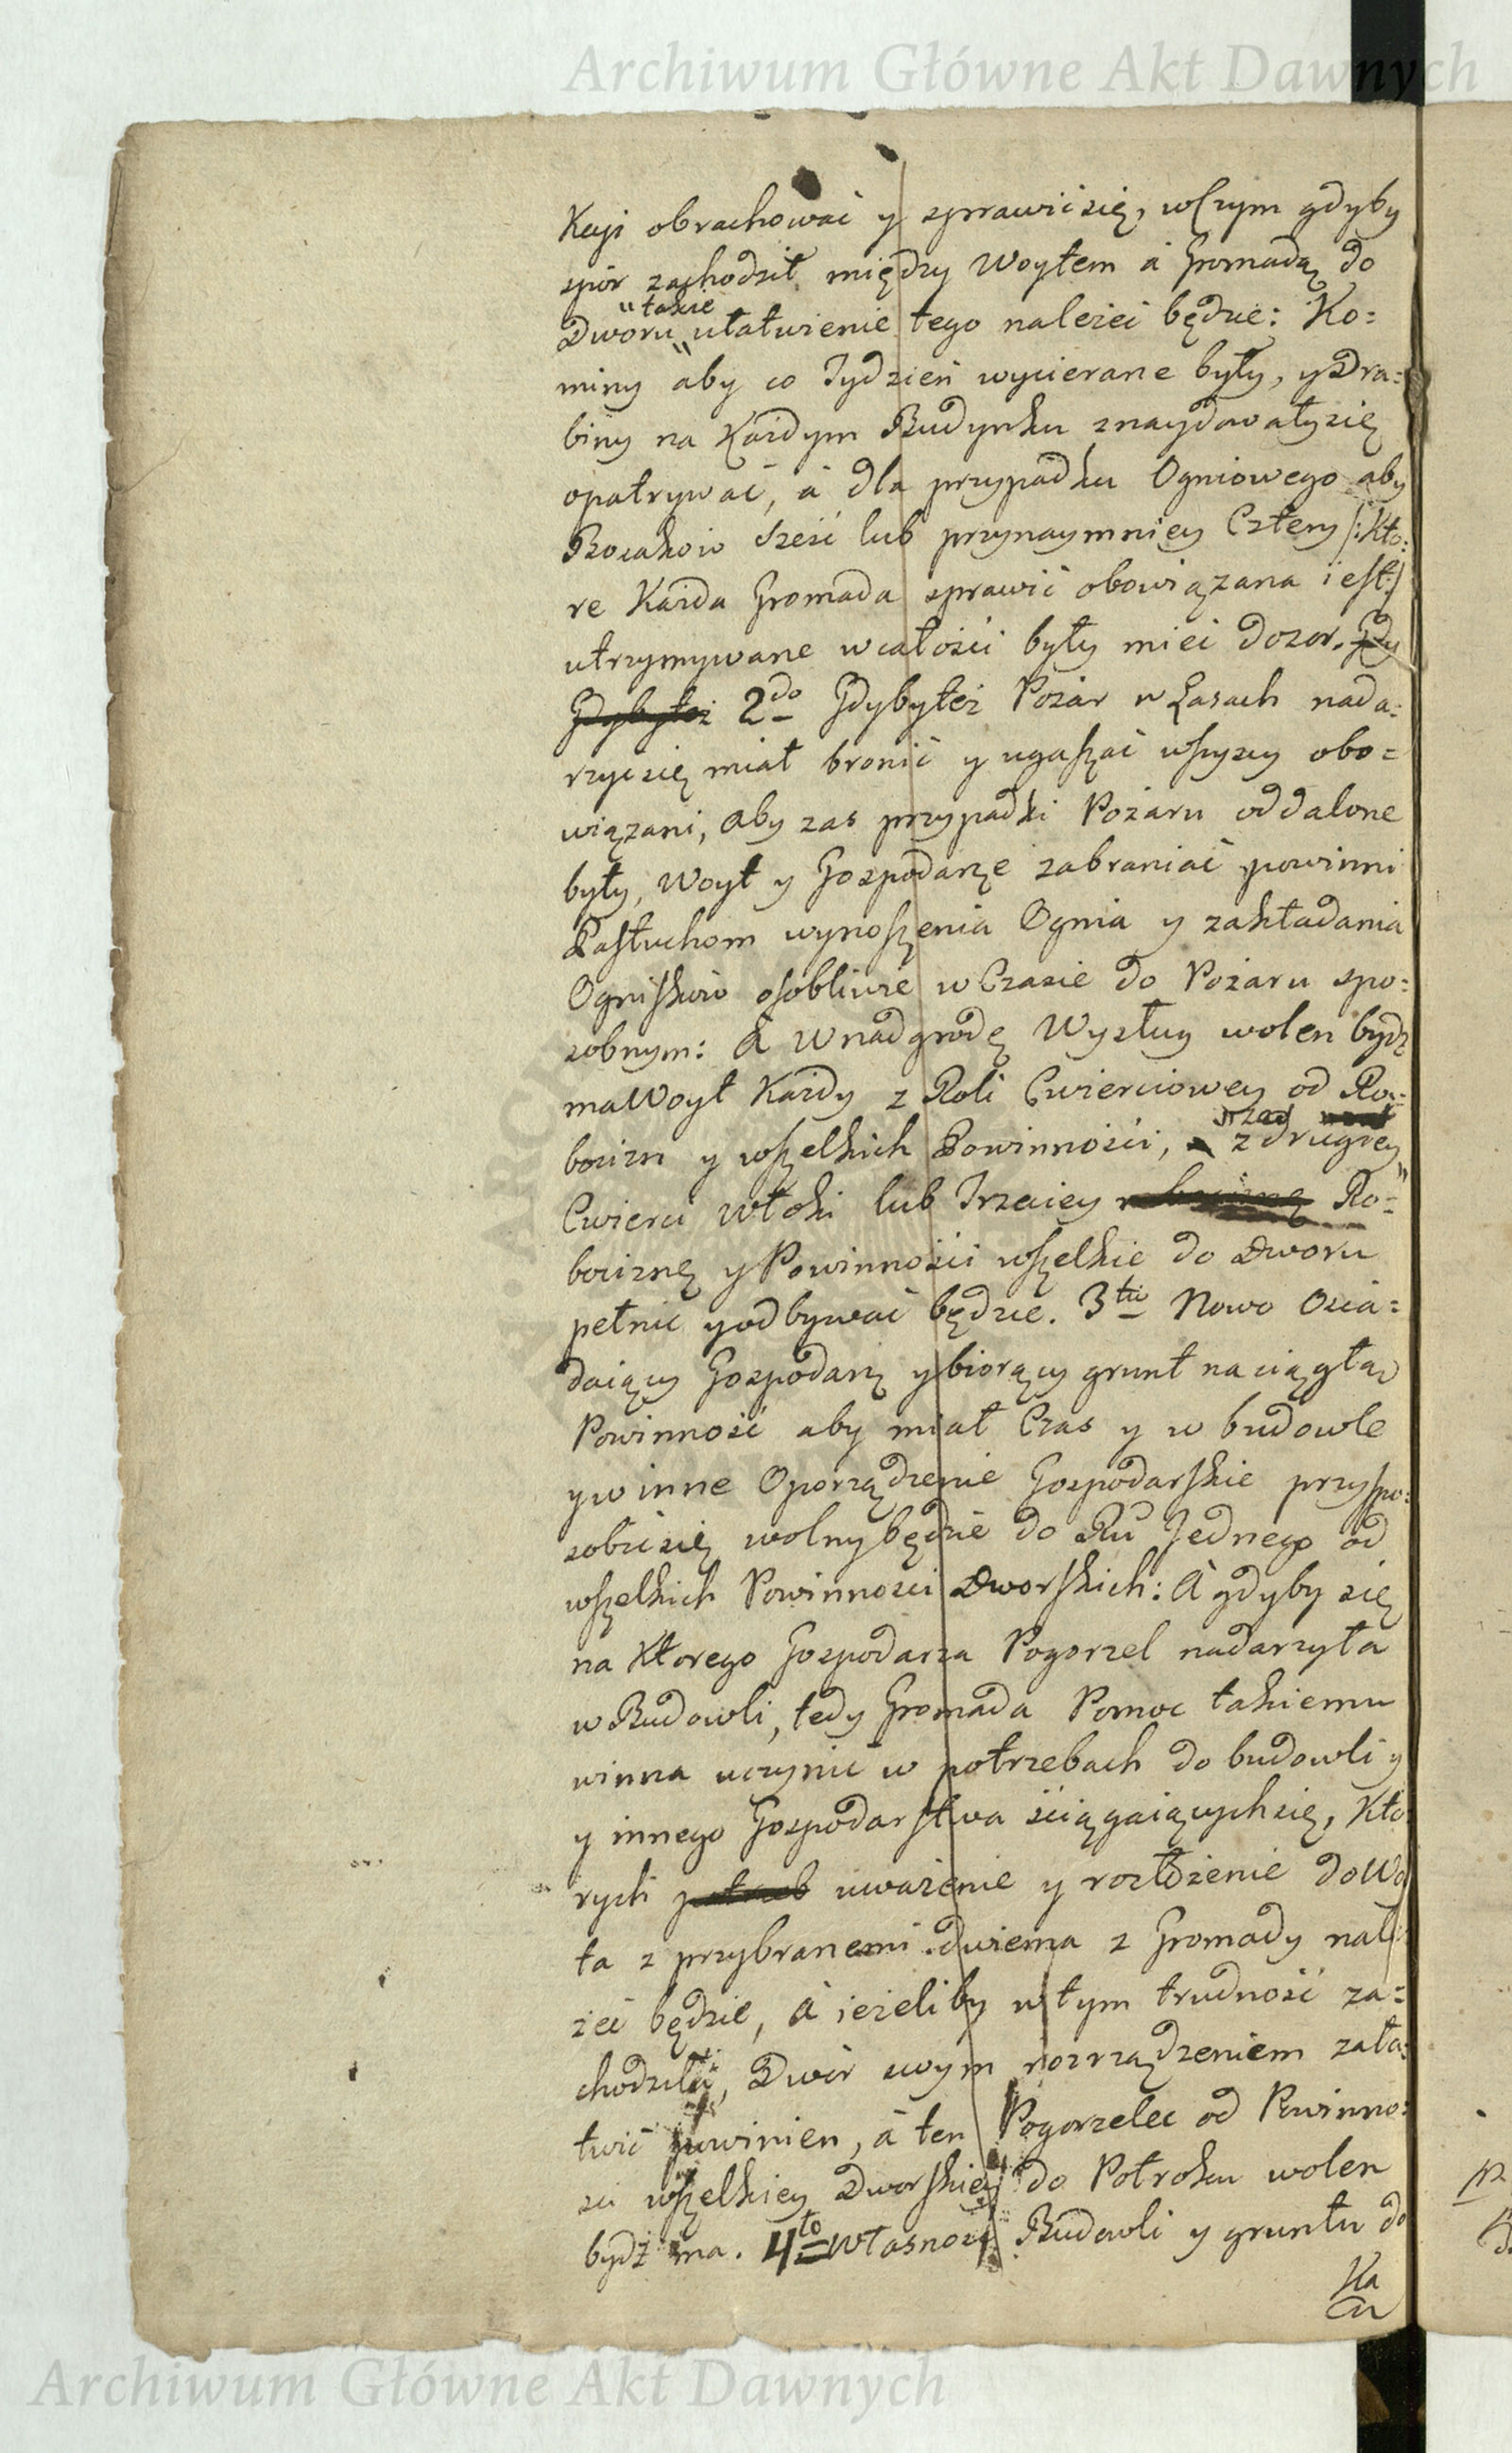 Archiwum Główne Akt Dawnych
Kuji obrachować y sprawić się, wczym gdyby
spór zachodził między Woytem á Gromadą do
"takie
Dworu" ułatwienie tego należeć będzie: Ko=
miny aby co Tydzień wycierane były, y Dra=
biny na Każdym Budynku znaydowały się
opatrywać, á dla przypadku Ogniowego aby
Bosakow Sześć lub przynaymniey Cztery /:Kto:
re Każda Gromada sprawić obowiązana iest:/
utrzymywane wcałości były mieć dozor. Gdy
Gdybyteż 2do Gdybyteż Pożar w Lasach nada:
rzyć się miał bronić y ugaszać wszyscy obo=
wiązani, aby zas przypadki Pożaru oddalone
były, Woyt y Gospodarze zabraniać powinni
Pastuchom wynoszenia Ognia y zakładania
Ogniskow osobliwie w Czasie do Pożaru spo:
sobnym: á Wnadgrodę Wysługi wolen bydź
ma Woyt Każdy z Roli Cwierciowey od Ro:
bocizn y wszelkich Powinności, z drugiey
Cwierci Włoki lub Trzeciey Ro=
bociznę y Powinności wszelkie do Dworu
pełnić y odbywać będzie. 3tio Nowo Osia=
daiący Gospodarz y biorący grunt na ciągłą
Powinność aby miał Czas y w budowle
y w inne Oporządzenie Gospodarskie przyspo:
sobić się wolny będzie do Ru Jednego od
wszelkich Powinnosci Dworskich: á gdyby się
na Ktorego Gospodarza Pogorzel nadarzyła
w Budowli, tedy Gromada Pomoc takiemu
winna uczynić w potrzebach do budowli y
y innego Gospodarstwa ściągaiących się, Kto
rych uważenie y rozłożenie do Wo
ta z przybranemi dwiema z Gromady nale
żeć będzie, á ieżeliby w tym trudność za=
chodziła, Dwór swym rozrządzeniem zała:
twić powinien, á ten Pogorzelec od Powinno:
sci wszelkiey Dworskiey do Połroku wolen
bydź ma. 4to Własność Budowli y gruntu do
Ka
Archiwum Główne Akt Dawnych